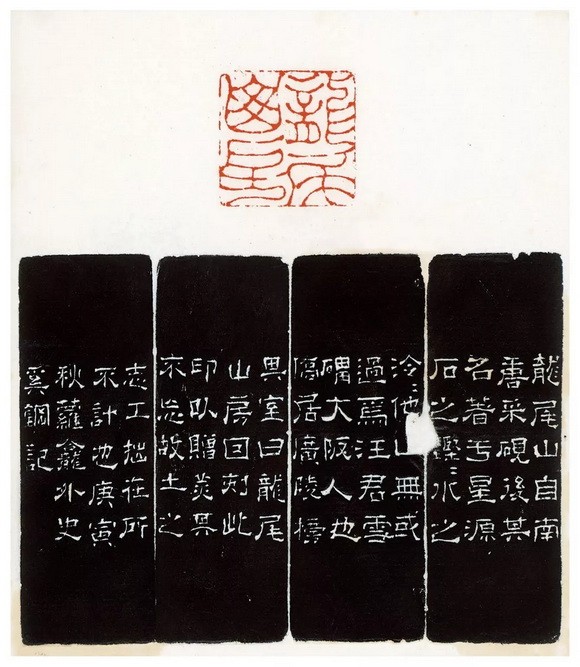 龍尾山房
龍尾山自南
唐采硯後其
名著于星源
石之鏗〻水之
泠〻他山無或
過焉汪君雪
礀大阪人也
僑居廣陵榜
其室曰龍尾
山房因刻此
印以贈美其
不忘故土之
志工拙在所
不計也庚寅
秋蘿龕外史
奚鋼記